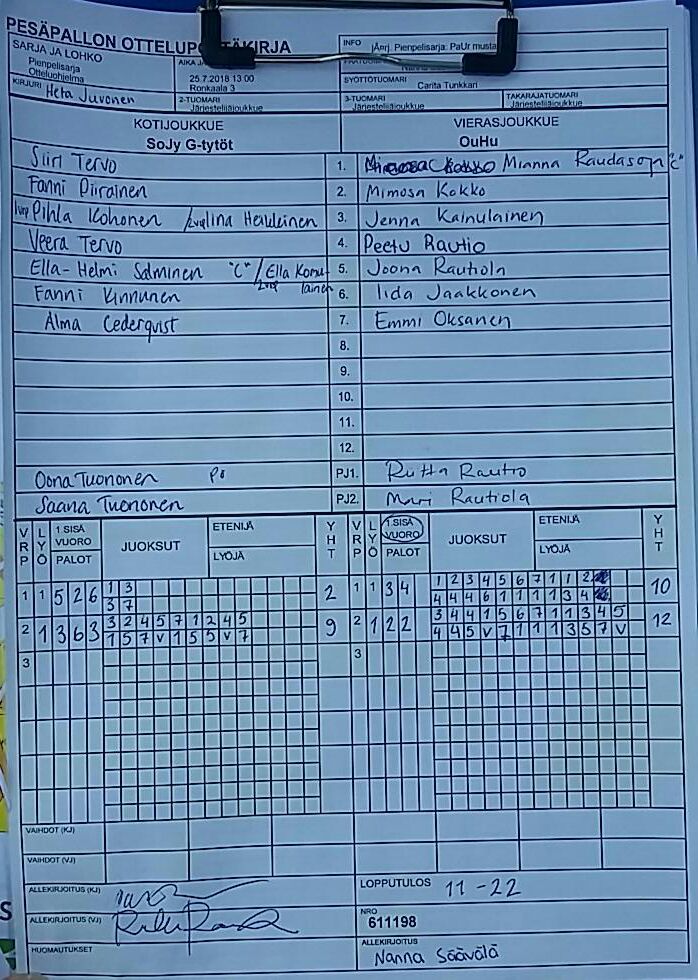 PESÄPALLON OTTELUP TÄKIRJA
SARJA JA LOHKO
Pienpelisarja
Otteluohjelma
KIRJURI Heta Juvonen
25.7.2018 13:00
Ronkaala 3
2-TUOMARI
Järjestelijäjoukkue
INFO jÄnj. Pienpelisarja: PaUr musta
SYÖTTÖTUOMARI
Carita Tunkkari
3-TUOMARI
Järjestelijäjoukkue
TAKARAJATUOMARI
Järjestelijäjoukkue
KOTIJOUKKUE VIERASJOUKKUE
SoJy G-tytöt OuHu
Siiri Tervo 1. Mianna Raudasoja "C"
Fanni Piirainen 2. Mimosa Kokko
Pihla Kohonen 3. Jenna Kainulainen
Veera Tervo 4. Peetu Rautio
Ella-Helmi Salminen "C" / Ella Komulainen 5. Joona Rautiola
Fanni Kinnunen 6. Iida Jaakkonen
Alma Cederqvist 7. Emmi Oksanen
8.
9.
10.
11.
12.
Oona Tuononen PJ1. Rautio
Saana Tuononen PJ2. Mari Rautiola
VRP LYÖ 1.SISÄ VUORO PALOT JUOKSUT ETENIJÄ LYÖJÄ YHT VRP LYÖ 1.SISÄ VUORO PALOT JUOKSUT ETENIJÄ LYÖJÄ YHT
1 1 5 2 6 1 3 2 1 1 3 4 1 2 3 4 5 6 7 1 1 2 10
3 7 4 4 4 6 1 1 1 1 3 4
2 1 3 6 3 3 2 4 5 7 1 2 4 5 9 2 1 2 2 3 4 4 1 5 6 7 1 1 3 4 5 12
1 5 7 V 1 5 5 V 7 4 4 5 V 7 1 1 1 3 5 7 V
3 3
VAIHDOT (KJ)
VAIHDOT (VJ)
ALLEKIRJOITUS (KJ) LOPPUTULOS 11-22
ALLEKIRJOITUS (VJ) NRO
611198
HUOMAUTUKSET ALLEKIRJOITUS
Nanna Säävälä